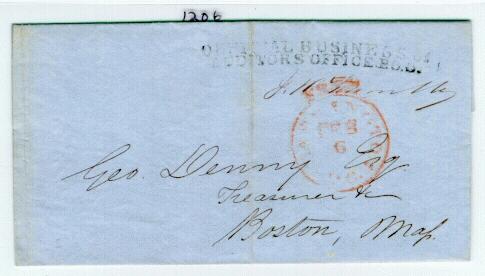 1206
OFFICIAL BUSINESS
AUDITOR'S OFFICE P.O.D.
FEB
6
Geo. Denny Esq
Treasurer &c
Boston, Mass.